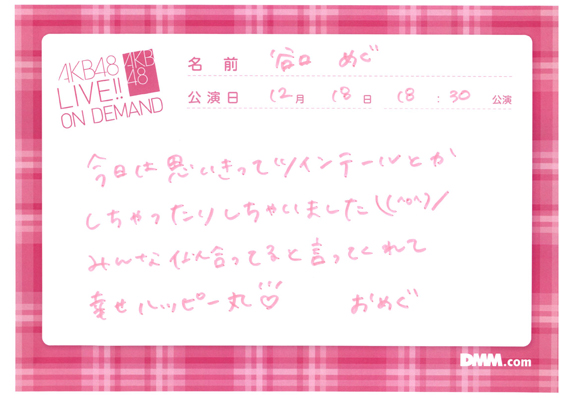 AKB48
LIVE!!
ON DEMAND
AKB
48
名前 谷口 めぐ
公演日 12月 18日 18:30 公演
今日は思いきってツインテールとか
しちゃったりしちゃいました\(^o^)/
みんな似合ってると言ってくれて
幸せハッピー丸♡ おめぐ
DMM.com